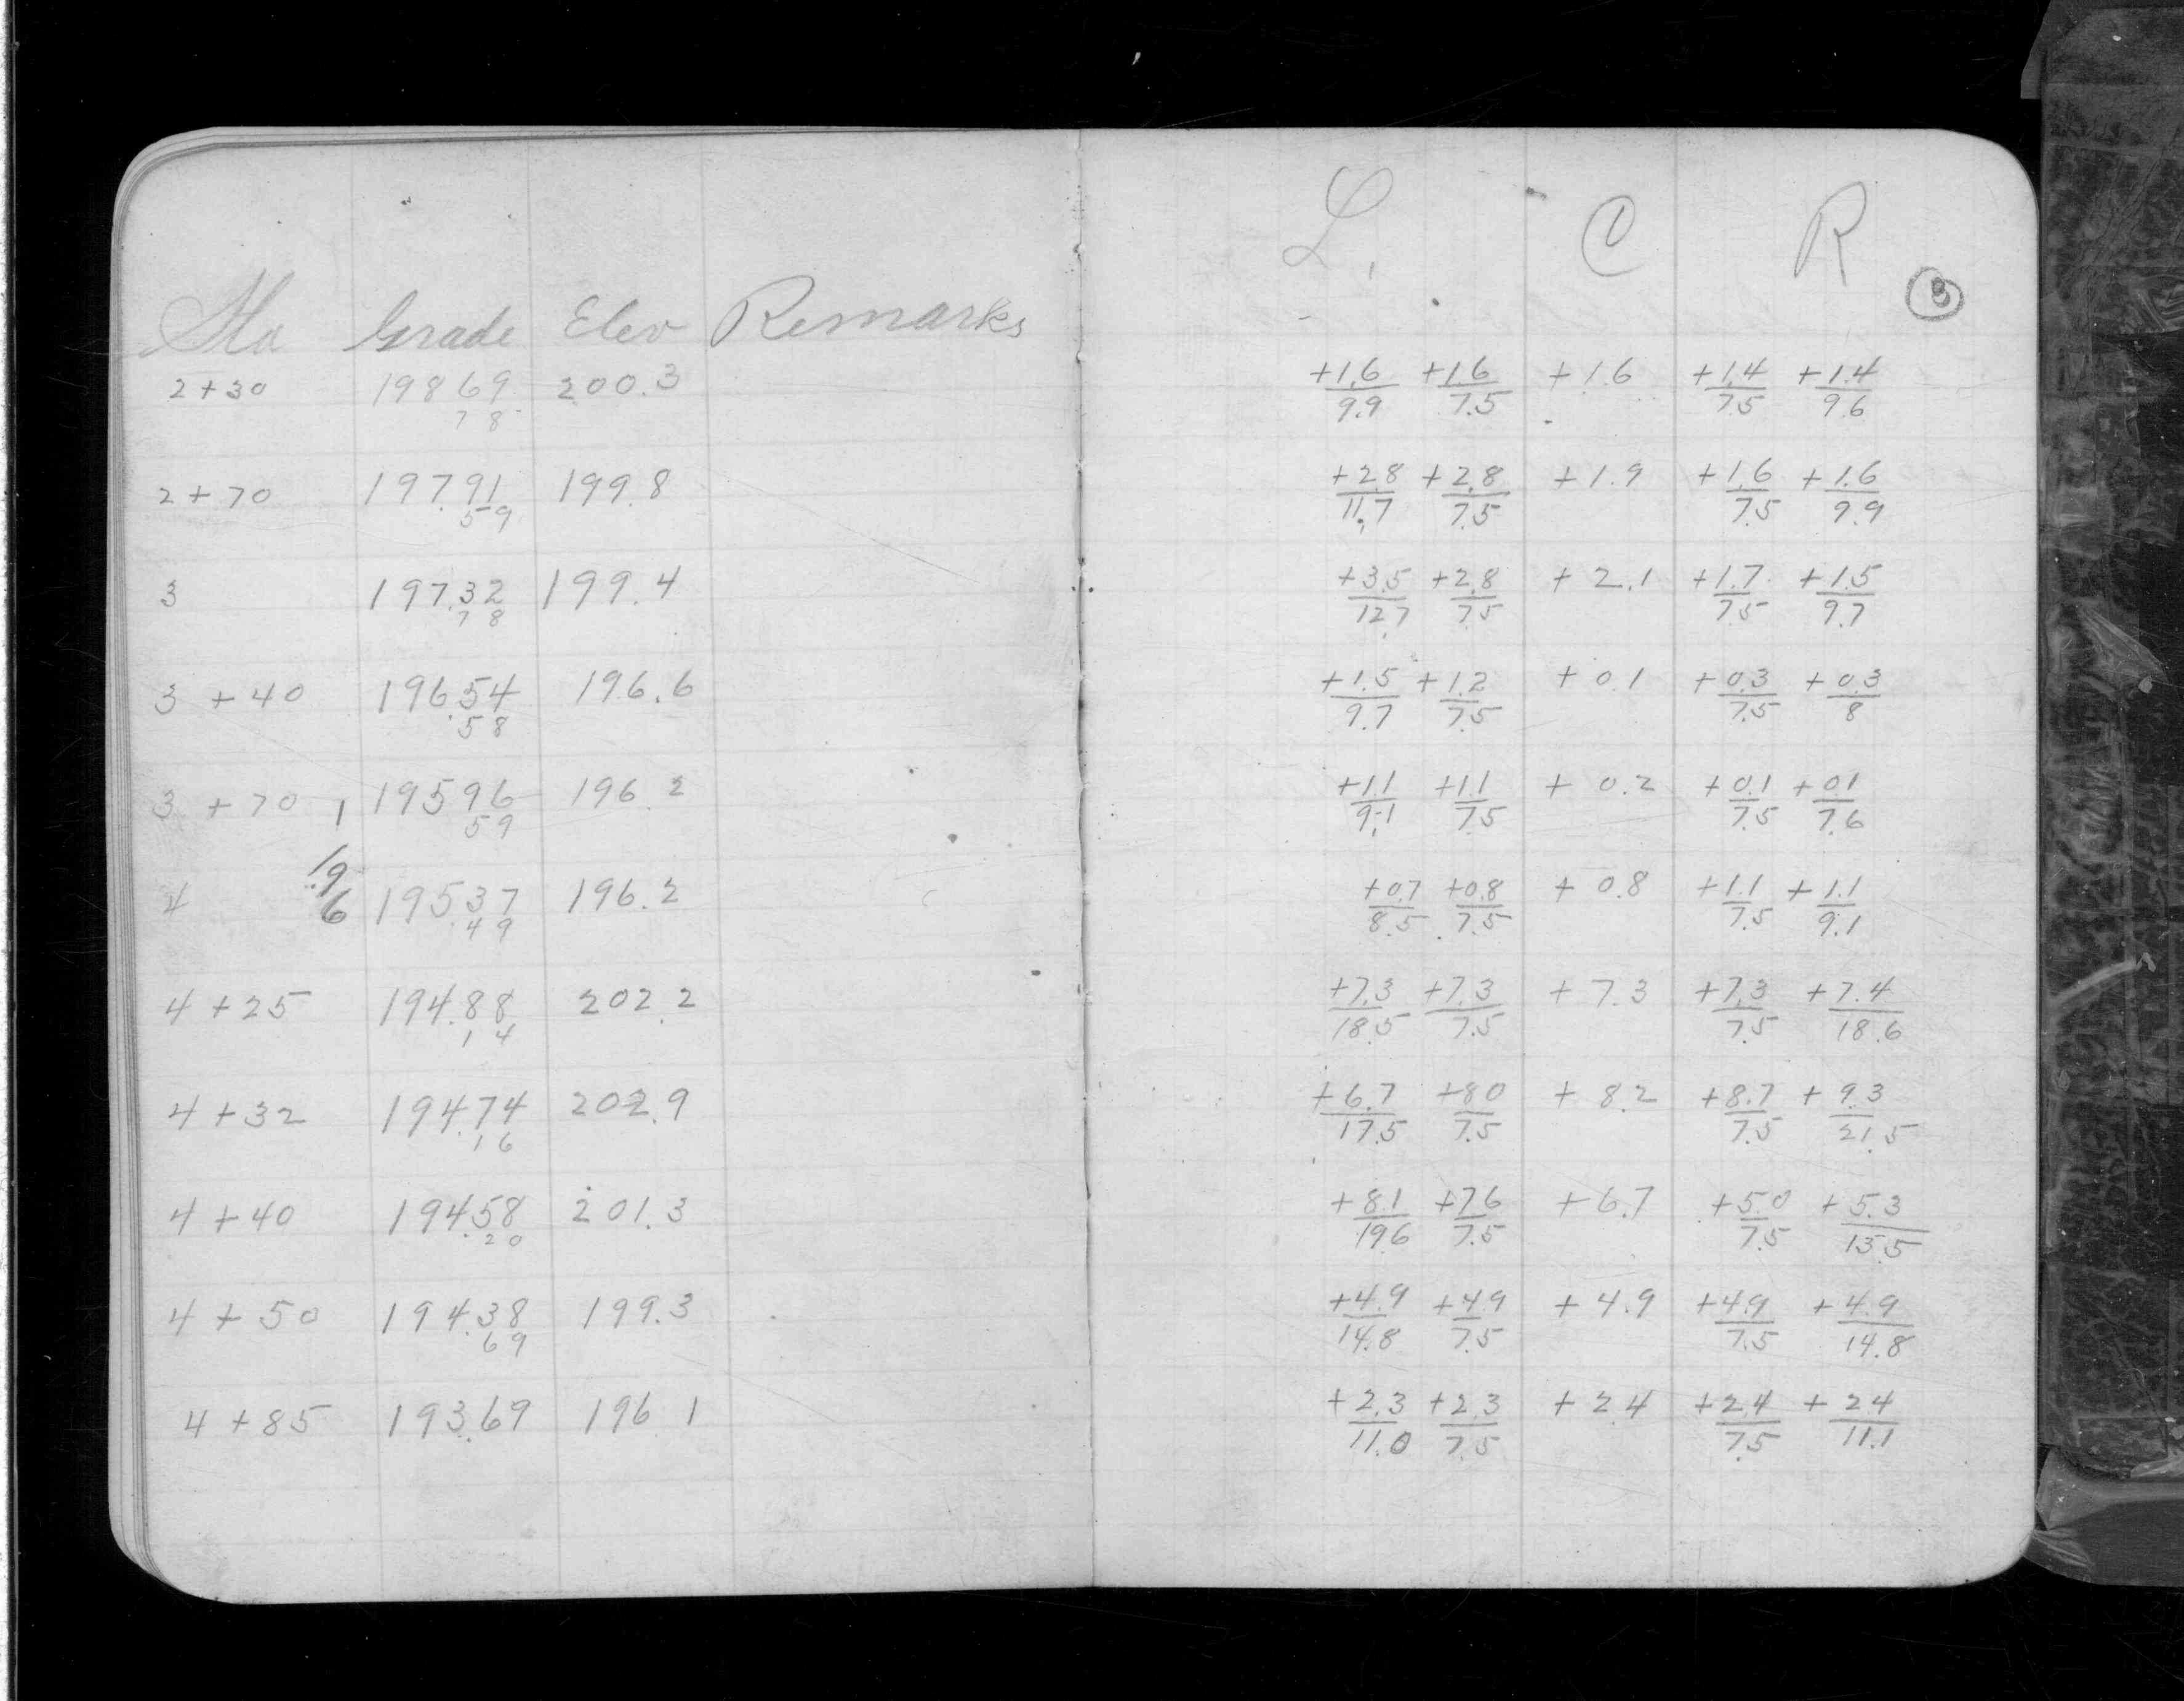 L. C R
3
Sta Grade Elev Remarks
2+30 198 69 200.3 +1.6/9.9 +1.6/7.5 +1.6 +1.4/7.5 +1.4/9.6
78
2+70 197.91 199.8 +2.8/11.7 +2.8/7.5 +1.9 +1.6/7.5 +1.6/9.9
59
3 197.32 199.4 +3.5/12.7 +2.8/7.5 +2.1 +1.7/7.5 +1.5/9.7
78
3+40 196.54 196.6 +1.5/9.7 +1.2/7.5 +0.1 +0.3/7.5 +0.3/8
58
3+70 195 96 196.2 +1.1/9.1 +1.1/7.5 +0.2 +0.1/7.5 +0.1/7.6
59
19
6
4 195.37 196.2 +0.7/8.5 +0.8/7.5 +0.8 +1.1/7.5 +1.1/9.1
49
4+25 194.88 202.2 +7.3/18.5 +7.3/7.5 +7.3 +7.3/7.5 +7.4/18.6
14
4+32 194.74 202.9 +6.7/17.5 +8.0/7.5 +8.2 +8.7/7.5 +9.3/21.5
16
4+40 194.58 201.3 +8.1/19.6 +7.6/7.5 +6.7 +5.0/7.5 +5.3/13.5
20
4+50 194.38 199.3 +4.9/14.8 +4.9/7.5 +4.9 +4.9/7.5 +4.9/14.8
69
4+85 193.69 196 1 +2.3/11.0 +2.3/7.5 +2.4 +2.4/7.5 +2.4/11.1